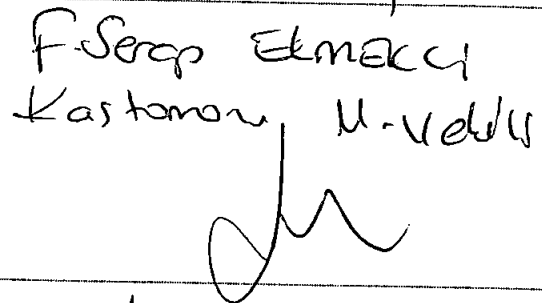 F. Serap EKMEKCİ
Kastamonu M. Vekili